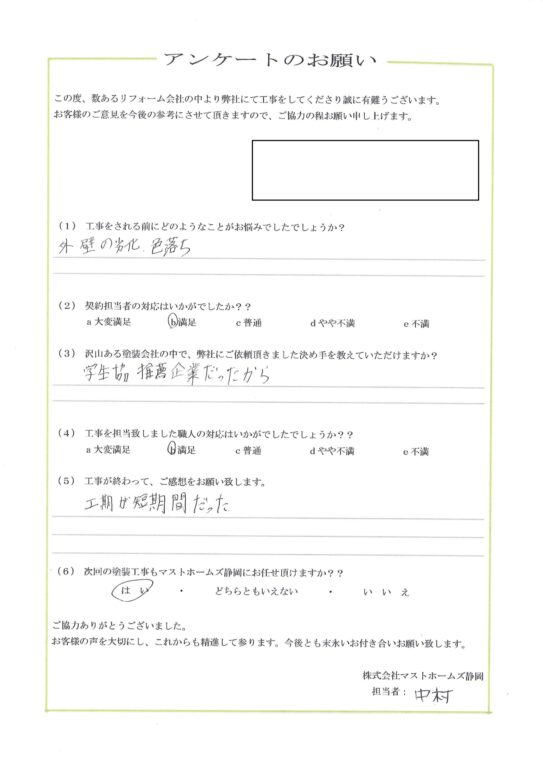 アンケートのお願い
この度、数あるリフォーム会社の中より弊社にて工事をしてくださり誠に有難うございます。
お客様のご意見を今後の参考にさせて頂きますので、ご協力の程お願い申し上げます。
(1) 工事をされる前にどのようなことがお悩みでしたでしょうか?
外壁の劣化、色落ち
(2) 契約担当者の対応はいかがでしたか??
a大変満足 b満足 c普通 dやや不満 e不満
(3) 沢山ある塗装会社の中で、弊社にご依頼頂きました決め手を教えていただけますか?
学生協 推薦企業だったから
(4) 工事を担当致しました職人の対応はいかがでしたでしょうか??
a大変満足 b満足 c普通 dやや不満 e不満
(5) 工事が終わって、ご感想をお願い致します。
工期が短期間だった
(6) 次回の塗装工事もマストホームズ静岡にお任せ頂けますか??
はい ・ どちらともいえない ・ いいえ
ご協力ありがとうございました。
お客様の声を大切にし、これからも精進して参ります。今後とも末永いお付き合いお願い致します。
株式会社マストホームズ静岡
担当者: 中村